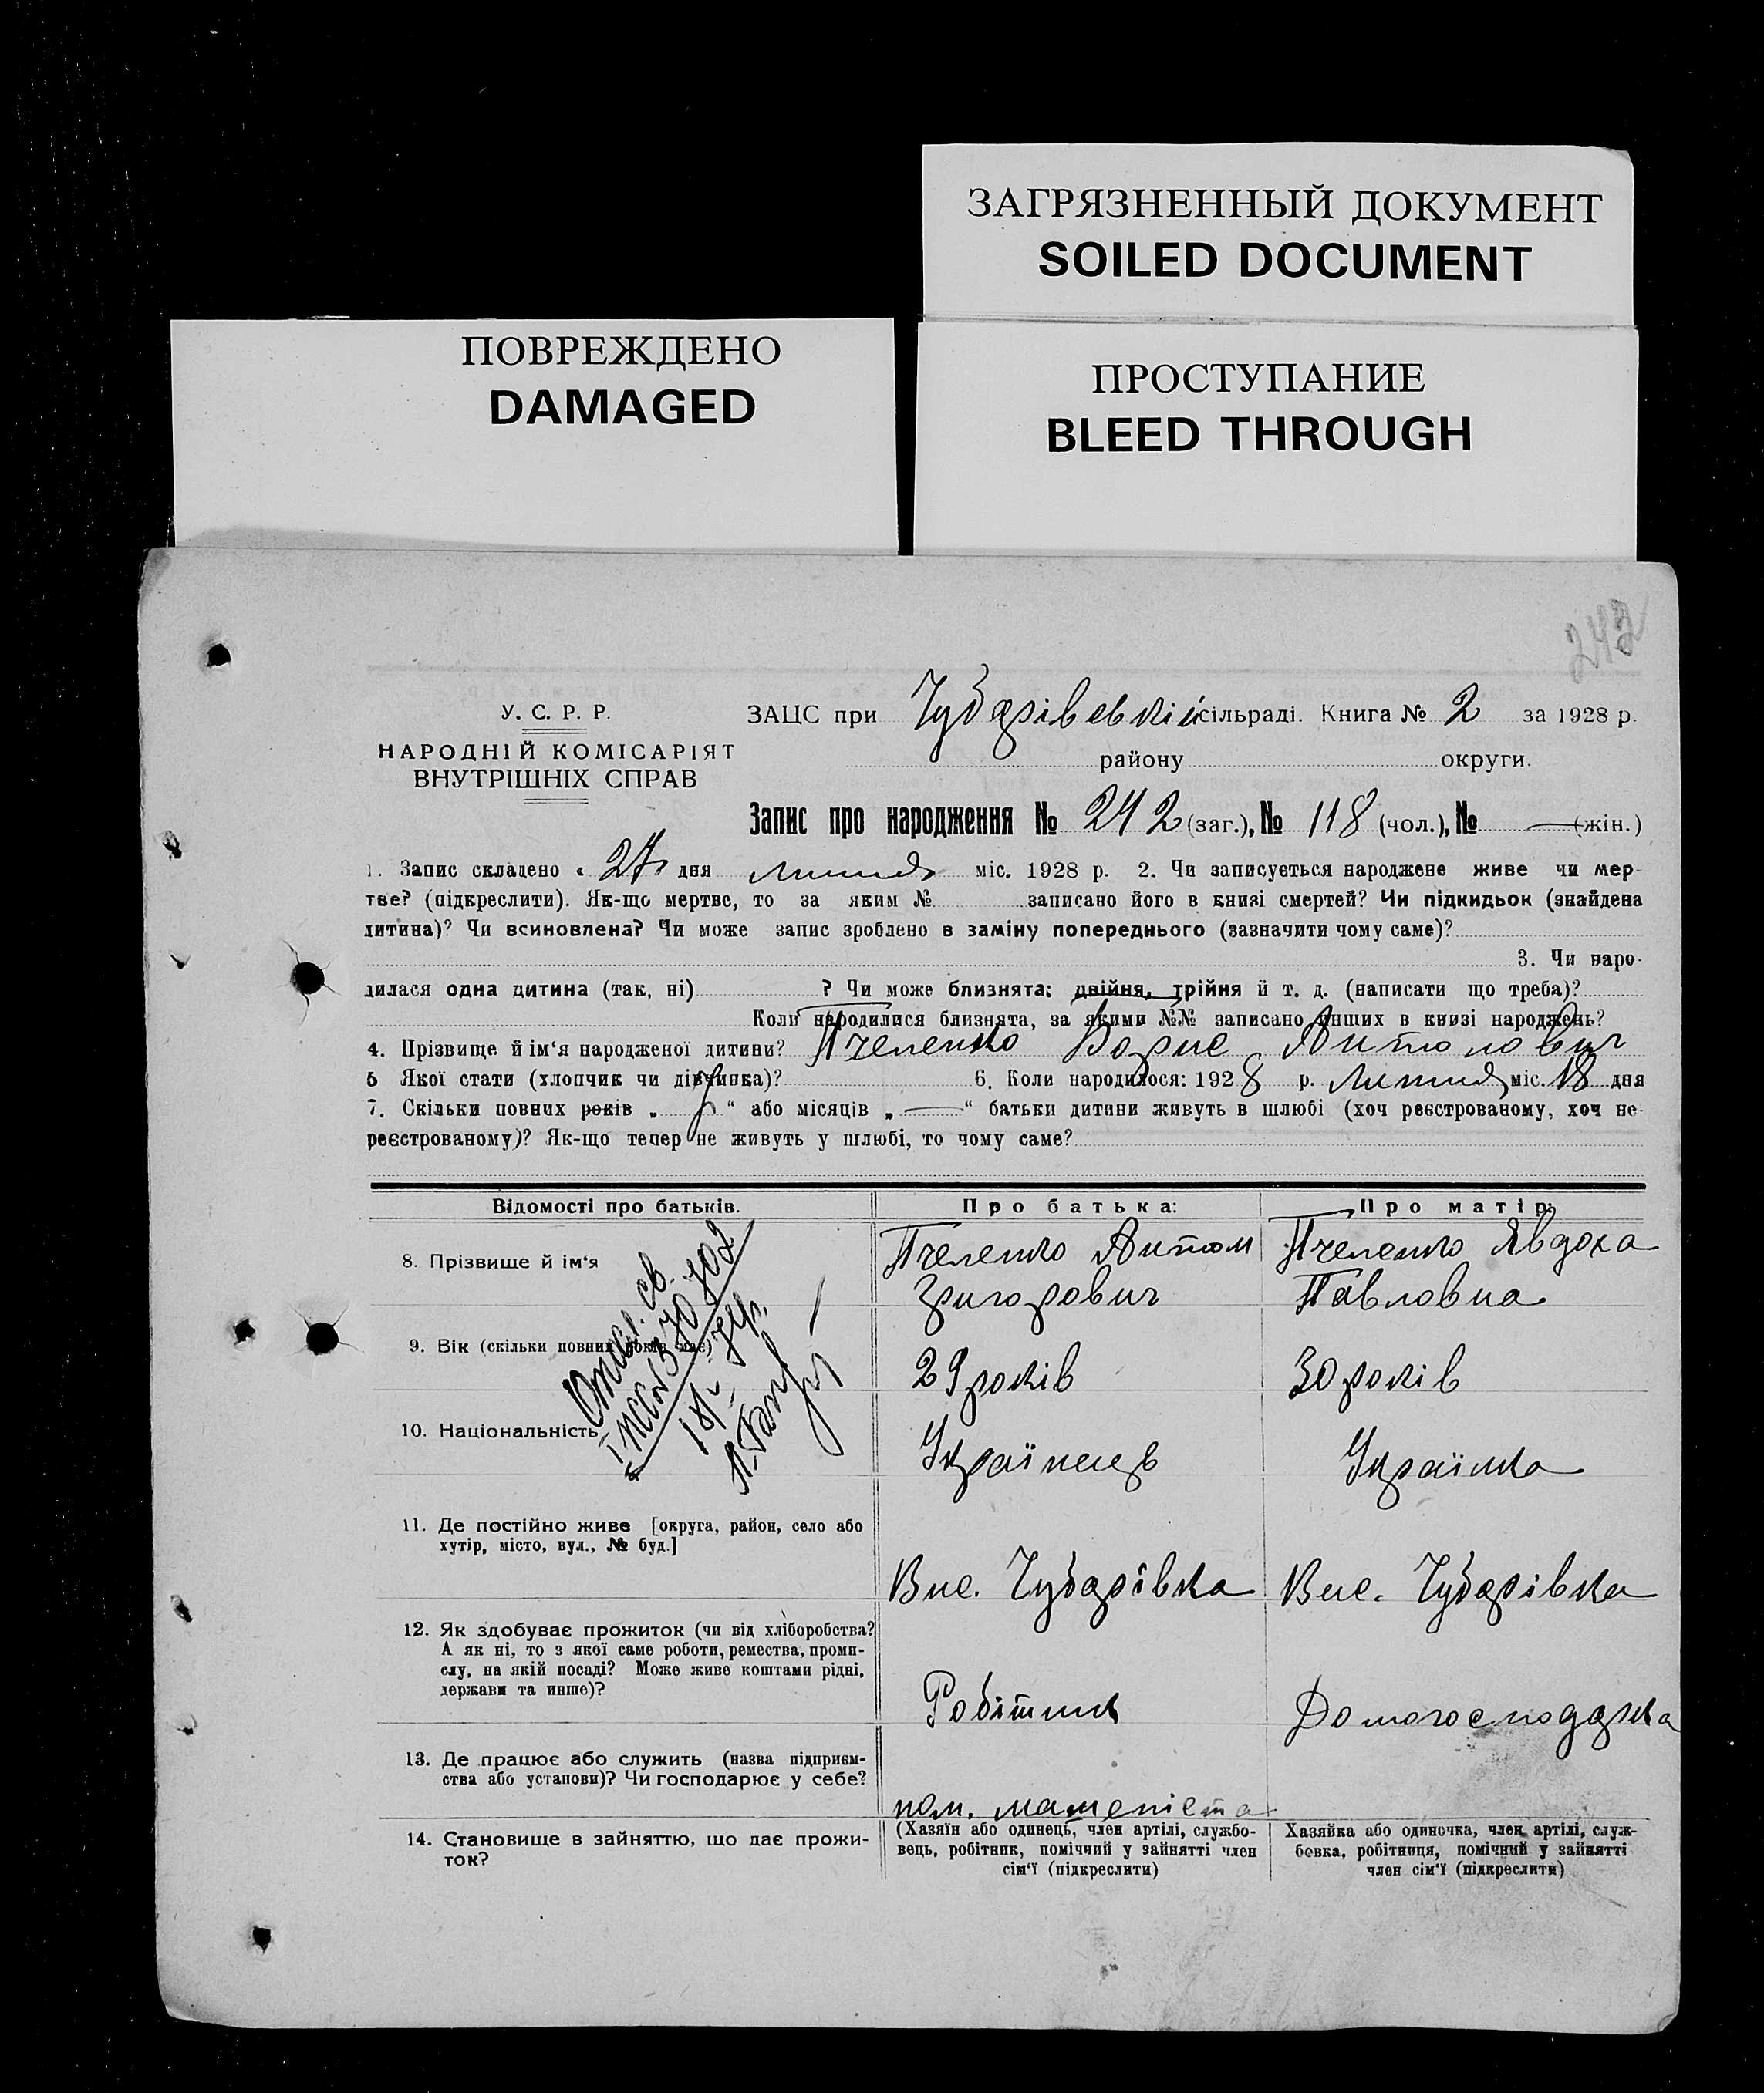 ЗАГРЯЗНЕННЫЙ ДОКУМЕНТ
SOILED DOCUMENT
ПОВРЕЖДЕНО
DAMAGED
ПРОСТУПАНИЕ
BLEED THROUGH
243
У. С. Р. Р.
НАРОДНІЙ КОМІСАРІЯТ
ВНУТРІШНІХ СПРАВ
ЗАЦС при Чубарівській сільраді. Книга № 2 за 1928 р.
району округи.
Запис про народження № 242 (заг.), № 118 (чол.), № — (жін.)
1. Запис складено « 27 дня липня міс. 1928 р. 2. Чи записується народжене живе чи мер-
тве? (підкреслити). Як-що мертве, то за яким № записано його в книзі смертей? Чи підкидьок (знайдена
дитина)? Чи всиновлена? Чи може запис зроблено в заміну попереднього (зазначити чому саме)?
3. Чи наро-
дилася одна дитина (так, ні) ? Чи може близнята: двійня, трійня й т. д. (написати що треба)?
Коли народилися близнята, за якими №№ записано инших в книзі народжень?
4. Прізвище й ім'я народженої дитини? Пчеленко Борис Антонович
5 Якої стати (хлопчик чи дівчинка)? 6. Коли народилося: 1928 р. Липня міс. 18 дня
7. Скільки повних років „ “ або місяців „ — “ батьки дитини живуть в шлюбі (хоч реєстрованому, хоч не-
реєстрованому)? Як-що тепер не живуть у шлюбі, то чому саме?
Відомості про батьків. Про батька: Про матір:
8. Прізвище й ім'я
Пчеленко Антон
Григорович
Пчеленко Явдоха
Павловна
9. Вік (скільки повних років має)
29 років
30 років
10. Національність
Українець
Українка
11. Де постійно живе [округа, район, село або
хутір, місто, вул., № буд.]
Вис. Чубарівка
Вис. Чубарівка
12. Як здобуває прожиток (чи від хліборобства?
А як ні, то з якої саме роботи, ремества, проми-
слу, на якій посаді? Може живе коштами рідні,
держави та инше)?
Робітник
Домогосподарка
13. Де працює або служить (назва підприєм-
ства або установи)? Чи господарює у себе?
пом. машеніста
14. Становище в зайняттю, що дає прожи-
ток?
(Хазяїн або одинець, член артілі, службо-
вець, робітник, помічний у зайнятті член
сім'ї (підкреслити)
Хазяйка або одиночка, член артілі, служ-
бовка, робітниця, помічний у зайнятті
член сім'ї (підкреслити)